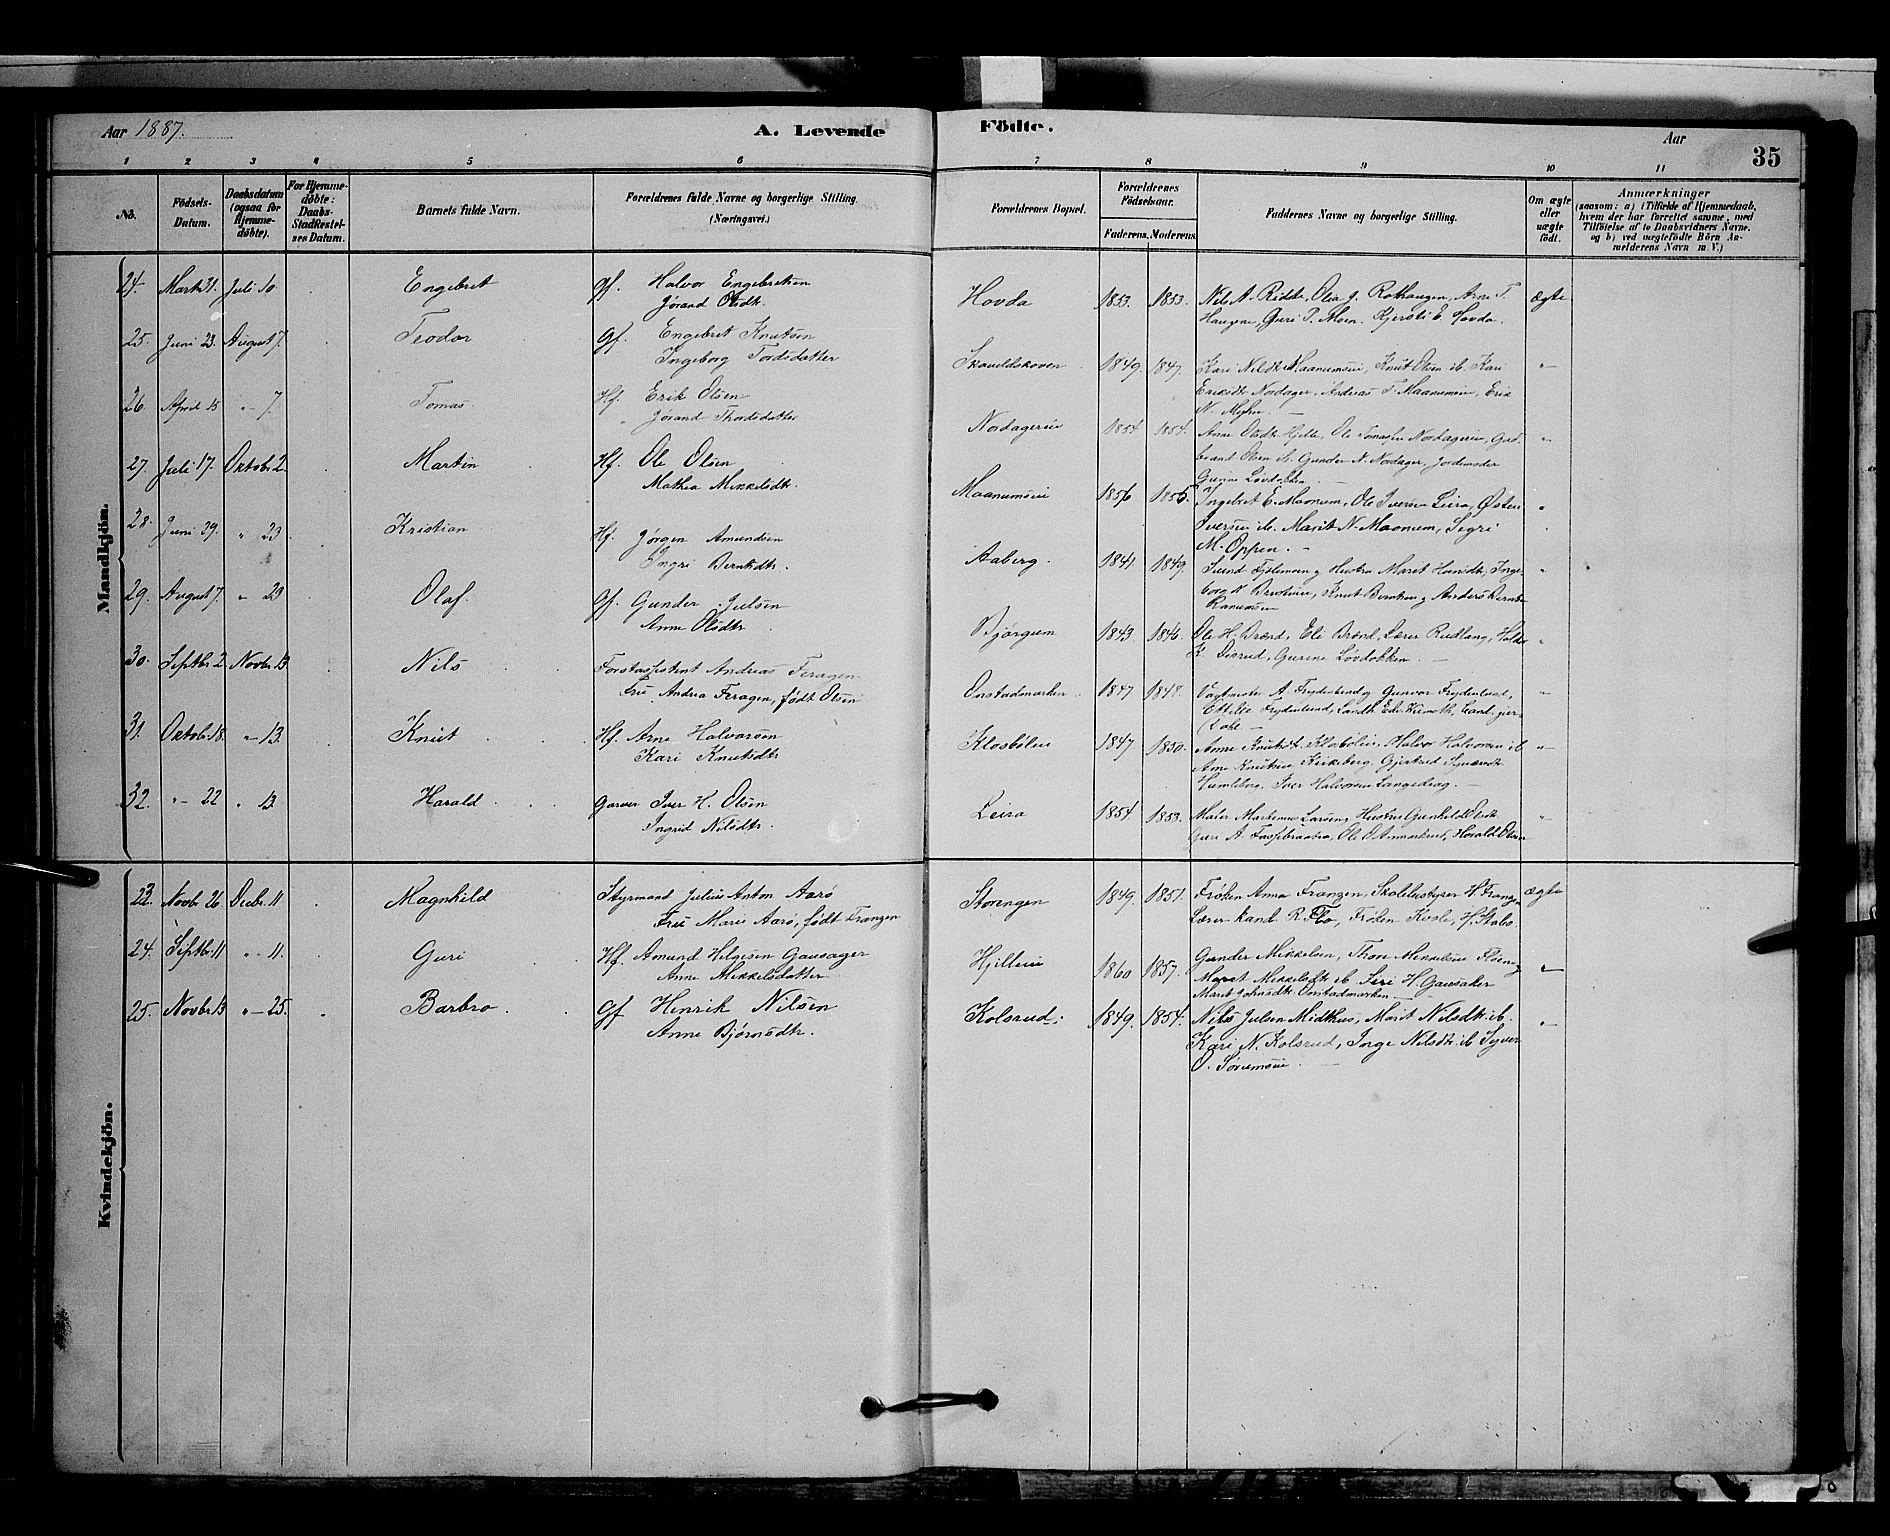 Aar 1887.
A. Levende Födte.
Aar
35
1 2 3 4 5 6 7 8 9 10 11
No.
Födsels-Datum.
Daabsdatum (ogsaa for Hjemme-döbte).
For Hjemme-döbte: Daabs-Stadfestel-ses Datum.
Barnets fulde Navn.
Forældrenes fulde Navne og borgerlige Stilling. (Næringsvei.)
Forældrenes Bopæl.
Forældrenes Födselsaar.
Faderens. Moderens.
Faddernes Navne og borgerlige Stilling.
Om ægte eller uægte födt.
Anmærkninger
(saasom: a) i Tilfælde af Hjemmedaab,
hvem der har forrettet samme, med
Tilföielse af to Daabsvidners Navne.
og b) ved uægtefödte Börn An-
melderens Navn m. V.)
Mandkjön.
24. Marts 31. Juli 10 Engebret Gf. Halvor Engebretsen
Jørand Olsdtr.
Hovda 1853. 1853. Nils A. Ridde, Olea J. Rothaugen, Arne T. ægte
Haugene, Guri P. Moen. Kjersti E. Hovda.
25. Juni 23. August 7. Teodor Gf. Engebret Knutsen
Ingeborg Tordsdatter
Skaveldskoven 1849. 1847. Kari Nilsdtr Maanumseie, Knut Olsen ib. Kari "
Eriksdtr Nordager, Andreas T. Maanumeie, Erik
N. Myhre. —
26. April 15 " 7. Tomas. Hf. Erik Olsen
Jørand Thordsdatter
Nordagereie 1854 1854. Anne Olsdtr Hjelle, Ole Tomassen Nordagereie, Gud- "
brand Olsen ib. Gunder N. Nordager, Jordemoder
Gurine Løvdokken
27. Juli 17. Oktobr 2 Martin Hf. Ole Olsen
Mathea Mikkelsdtr.
Maanumseie 1856 1855. Ingebret E. Maanum, Ole Iversen Leira, Østen "
Iversen ib. Marit N. Maanum, Sigri
M. Oppen. —
28. Juni 29. " 23 Kristian Hf. Jørgen Amundsen
Ingri Berntsdtr.
Aaberg. 1841 1849. Svend Fjoseman og Hustru Marit Hansdtr, Inge- "
borg Brusteien, Knut Berntsen og Anders Berntsen
Ranumseie
29. August 7. " 23 Olaf. Gf. Gunder Julsen
Anne Olsdtr
Bjørgum 1843 1846. Ole H. Brænd, Eli Brænd, Lærer Rudlang, Halvor "
K. Disrud, Gurine Løvdokken. —
30. Septbr. 2 Novbr. 13 Nils Forstassistent Andreas Feragen
Fru Andrea Feragen, født Olsen
Onstadmarken 1847 1848. Vagtmester A. Frydenlund og Gunvor Frydenlund, "
Othilie Frydenlund, Landh. Kand. jur.
31. Oktobr. 18. " 13. Knut Hf. Arne Halvorsen
Kari Knutsdtr
Klosbøleie 1847 1850. Anne Knutsdtr Klosbøleie, Halvor Halvorsen ib "
Arne Knutsen Kirkeberg, Gjertrud Syversdtr
Humleberg, Iver Halvorsen Langedrag. —
32. " 22 " 13. Harald Garver Iver H. Olsen
Ingrid Nilsdtr.
Leira 1854 1853. Maler Martinus Larsen, Hustru Gunhild Olsdtr "
Guri A. Fassbraaten, Ole O. Harald Olsen
Kvindekjön.
23. Novbr 26 Decbr. 11 Magnhild Styrmand Julius Anton Aarø
Fru Marie Aarø, født Franzen
Storengen 1849. 1851. Frøken Anna Franzen, Skolebestyrer H. Franzen ægte
Lærer kand. R. Flo, Frøken Kisle, H. Stabo.
24. Septbr 11 " 11. Guri Hf. Amund Helgesen Gausager
Anne Mikkelsdatter
Hjelleeie 1860 1857. Gunder Mikkelsen, Thore Mikkelsen Floen og "
Marit Mikkelsdtr ib. Siri H. Gausaker
Marit Johnsdtr Onstadmarken —
25. Novbr 13 " 25. Barbro Gf Henrik Nilsen
Anne Bjørnsdtr.
Kolsrud. 1849. 1854. Nils Julsen Midthus, Marit Nilsdtr. ib. "
Kari N. Kolsrud, Inge Nilsdtr. ib Syver
O. Sørumseie. —